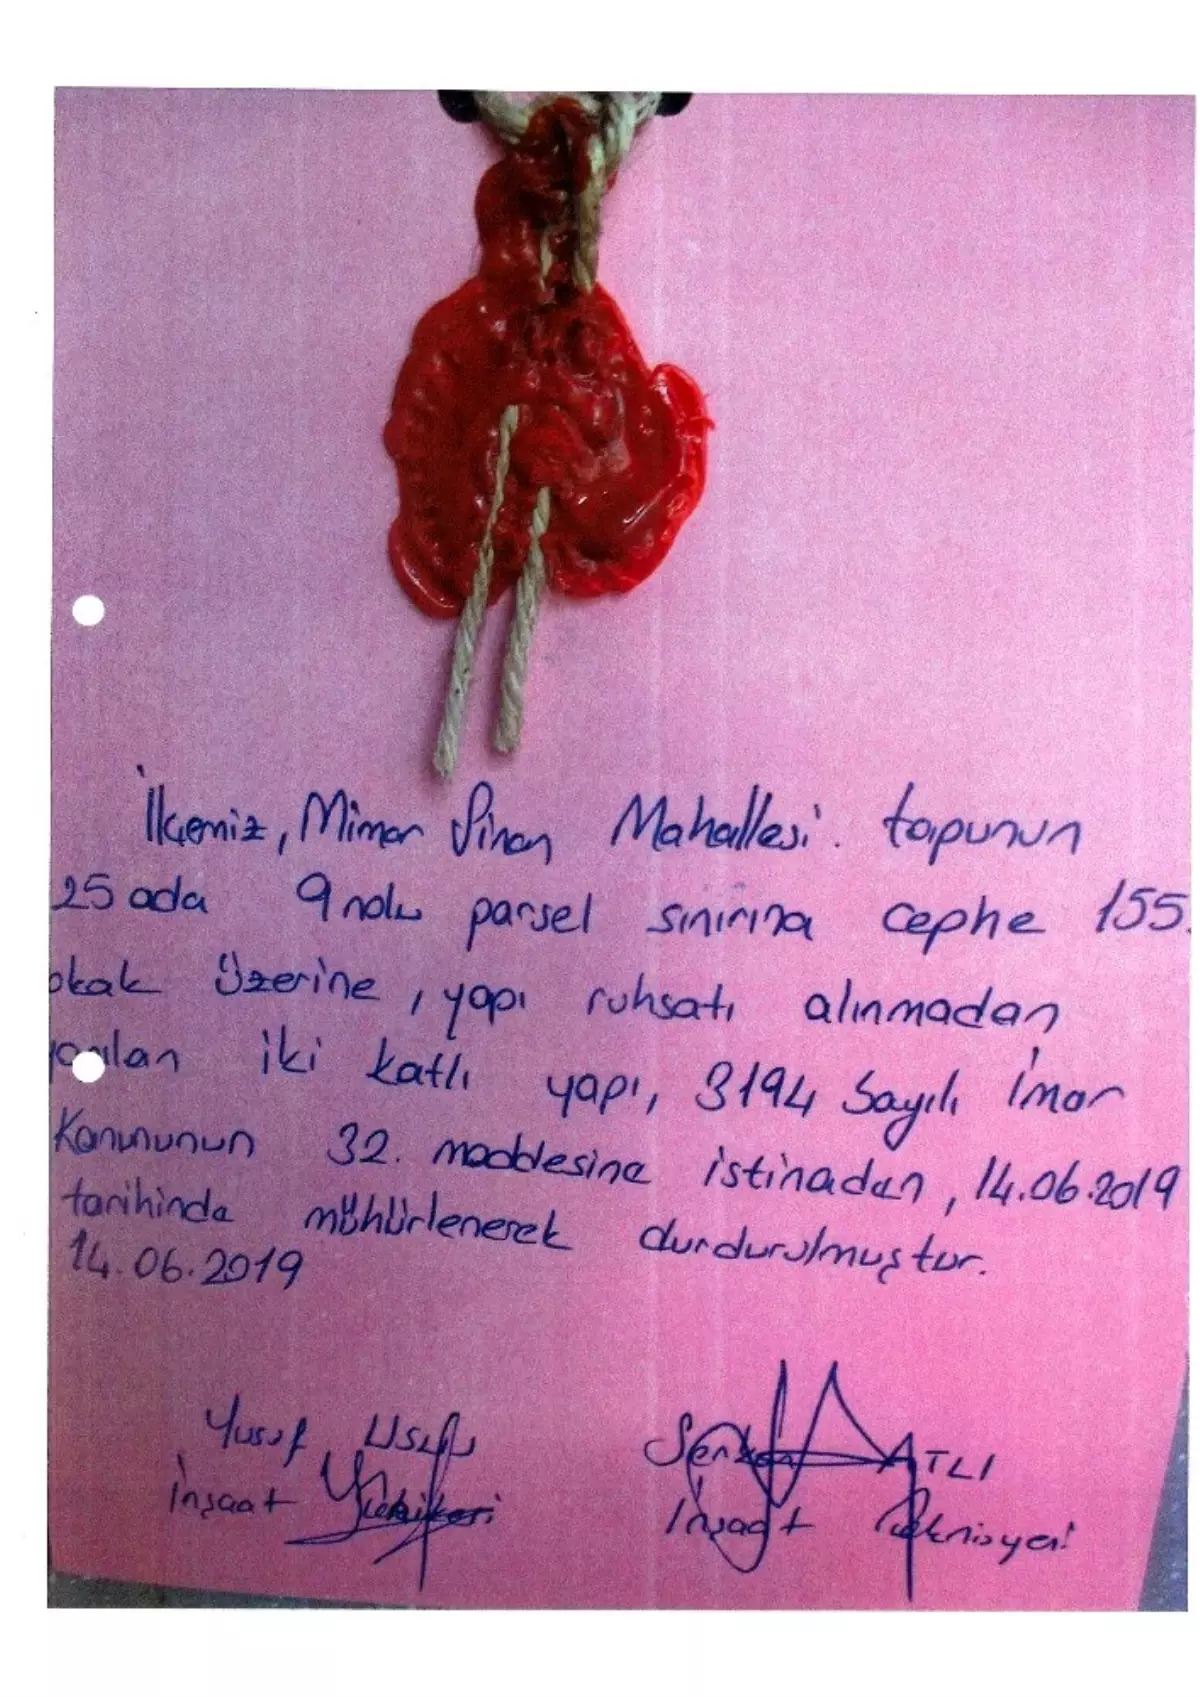 İlçemiz, Mimar Sinan Mahallesi. tapunun
25 ada 9 nolu parsel sınırına cephe 155.
okak üzerine, yapı ruhsatı alınmadan
iki katlı yapı, 3194 Sayılı İmar
Kanununun 32. maddesine istinaden, 14.06.2019
tarihinde mühürlenerek durdurulmuştur.
14.06.2019
Yusuf Serkan ATLI
İnşaat İnşaat Teknisyeni